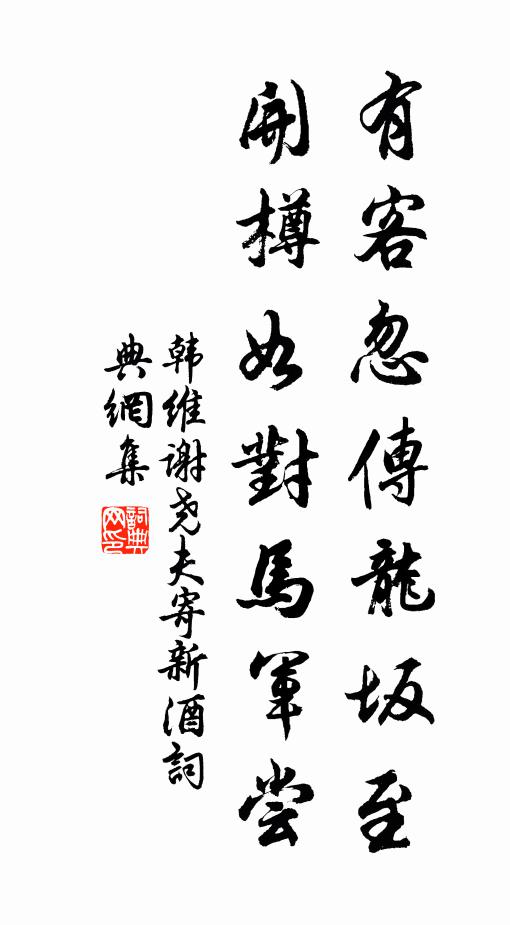 有客忽傳龍坂至
開樽如對馬軍尝
韩维谢尧夫寄新酒詞
典網集
詞典
网印